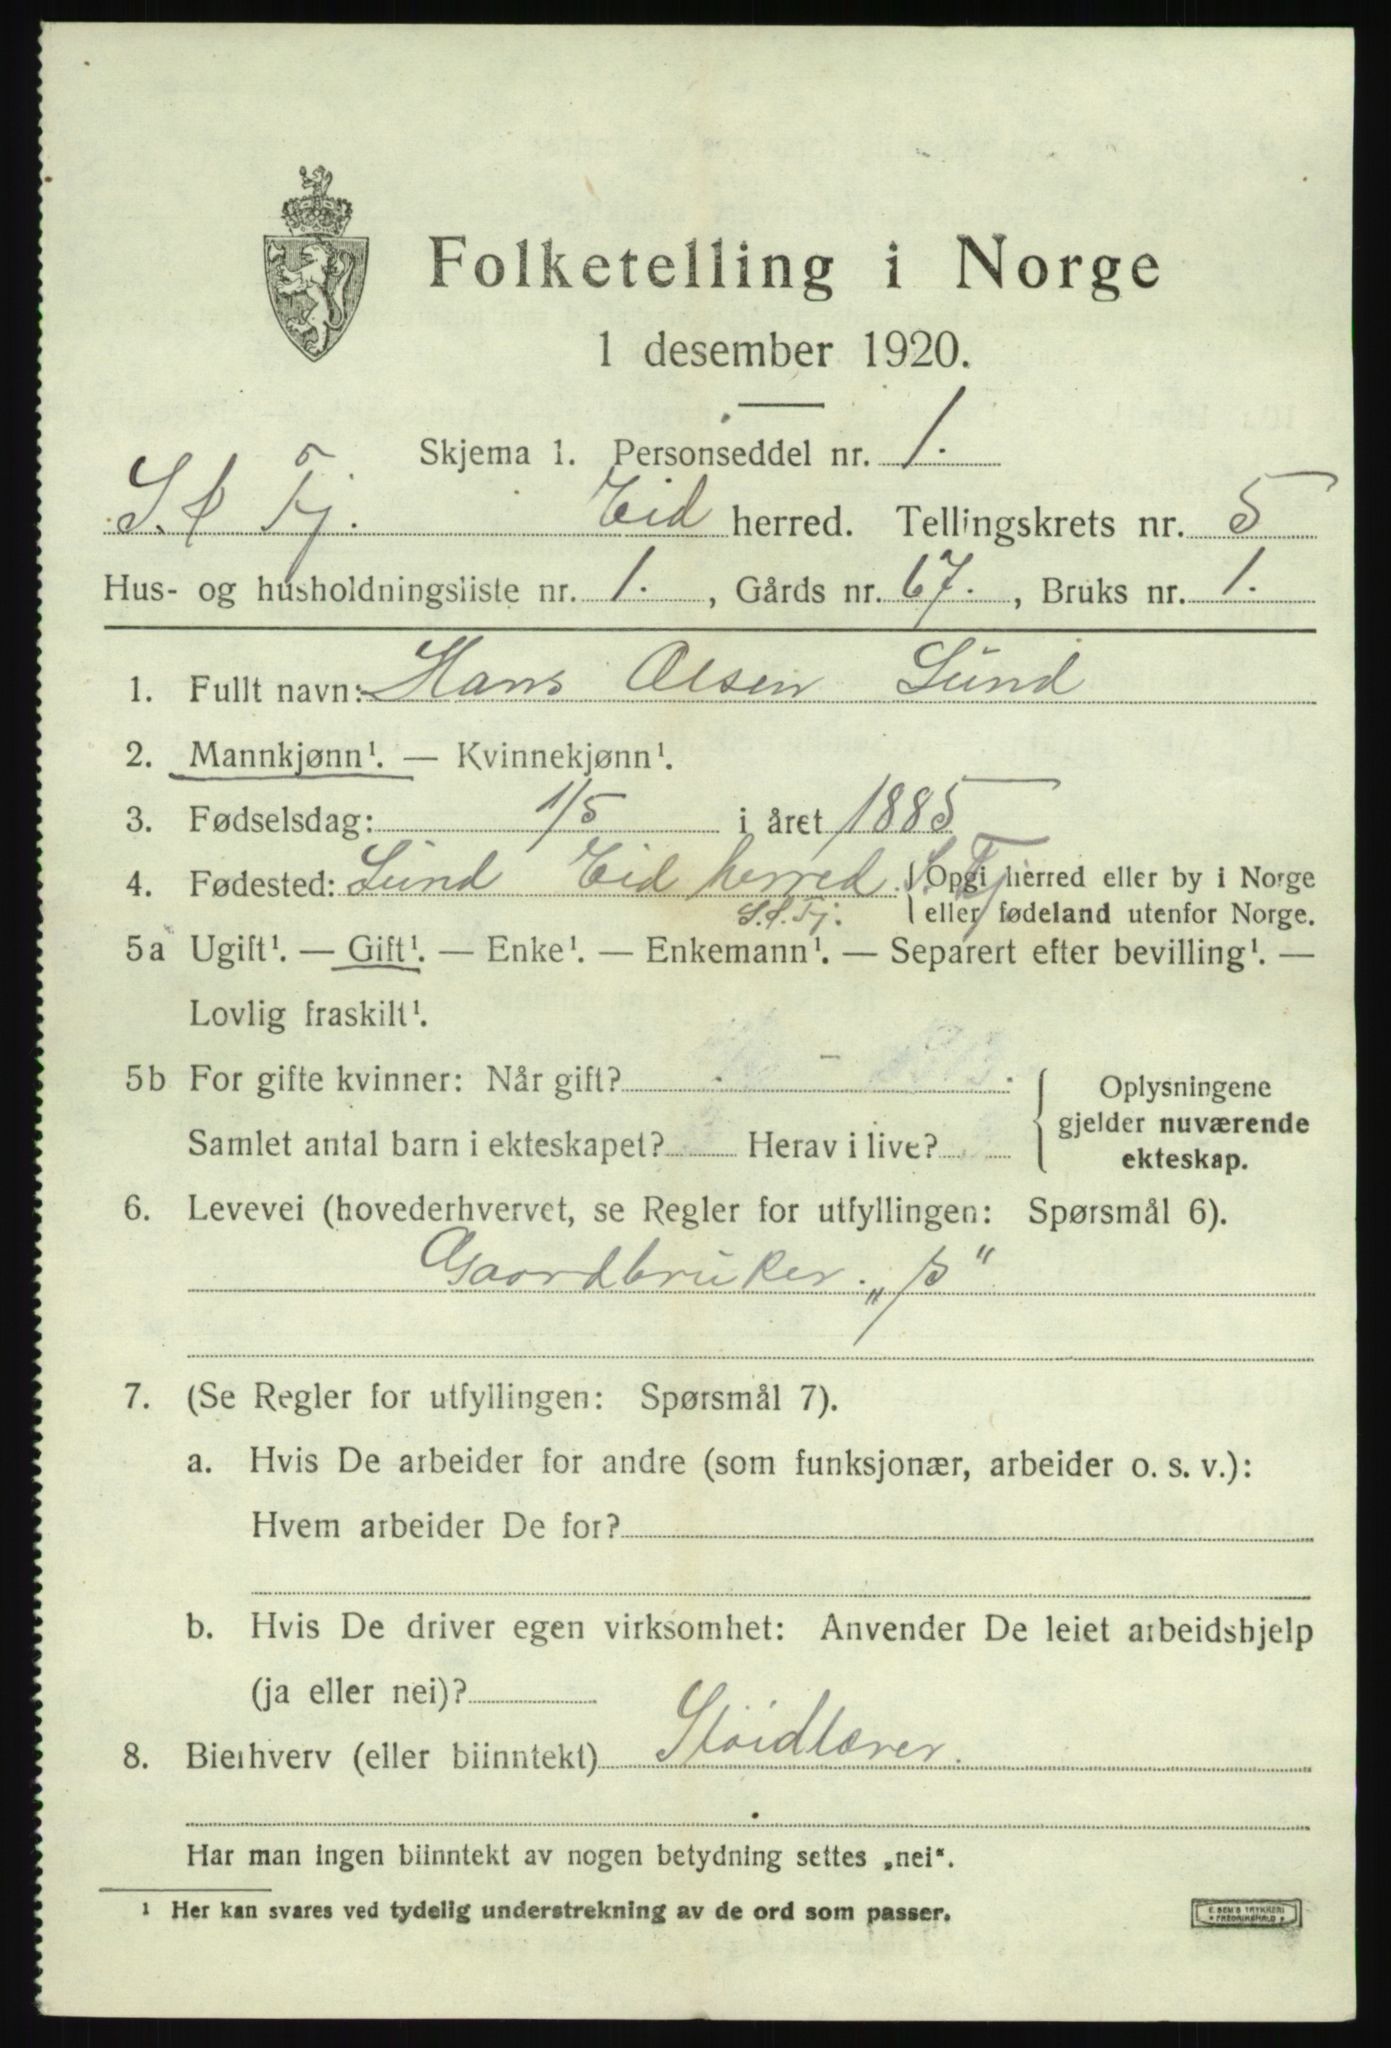 Folketelling i Norge
1 desember 1920.
Skjema 1. Personseddel nr. 1.
S. & Fj. Eid herred. Tellingskrets nr. 5
Hus- og husholdningsliste nr. 1., Gårds nr. 67., Bruks nr. 1.
1. Fullt navn: Hans Olsen Lund
2. Mannkjønn¹. — Kvinnekjønn¹.
3. Fødselsdag: 1/5 i året 1885
4. Fødested: Lund Eid herred S. Fj. { Opgi herred eller by i Norge
S. & Fj. eller fødeland utenfor Norge.
5a Ugift¹. — Gift¹. — Enke¹. — Enkemann¹. — Separert efter bevilling¹. —
Lovlig fraskilt¹.
5b For gifte kvinner: Når gift?
Samlet antal barn i ekteskapet? Herav i live?
Oplysningene
gjelder nuværende
ekteskap.
6. Levevei (hovederhvervet, se Regler for utfyllingen: Spørsmål 6).
Gaardbruker. „ß“
7. (Se Regler for utfyllingen: Spørsmål 7).
a. Hvis De arbeider for andre (som funksjonær, arbeider o. s. v.):
Hvem arbeider De for?
b. Hvis De driver egen virksomhet: Anvender De leiet arbeidshjelp
(ja eller nei)?
8. Bierhverv (eller biinntekt) Sløidlærer.
Har man ingen biinntekt av nogen betydning settes „nei“.
¹ Her kan svares ved tydelig understrekning av de ord som passer.
E. SEM'S TRYKKERI
FREDRIKSHALD